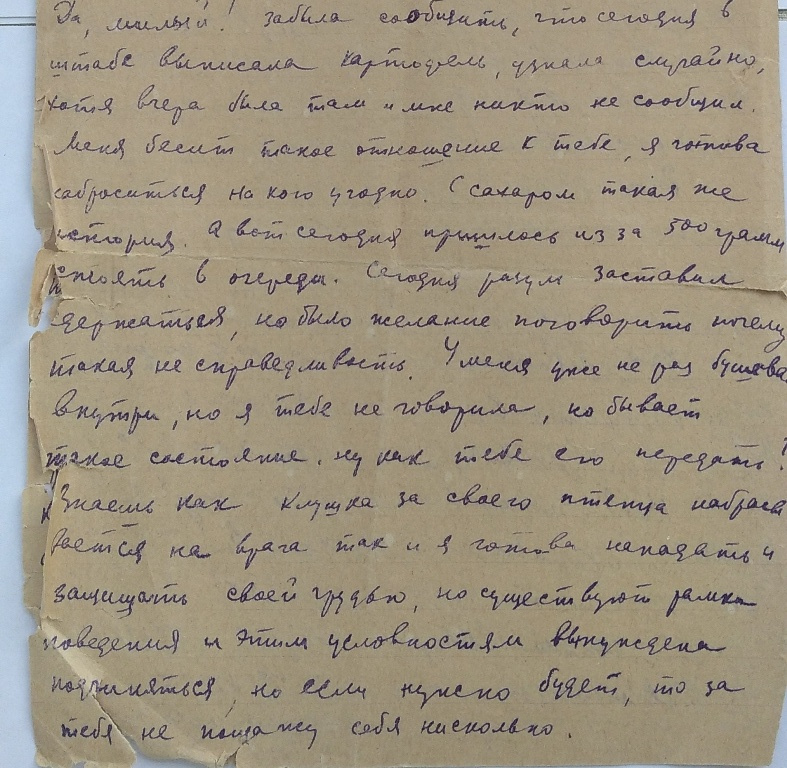 Да, милый! Забыла сообщить, что сегодня в
штабе выписала картофель, узнала случайно,
хотя вчера была там и мне никто не сообщил.
Меня бесит такое отношение к тебе, я готова
наброситься на кого угодно. С сахаром такая же
история. А вот сегодня пришлось из за 500 грамм
стоять в очереди. Сегодня разум заставил
сдержаться, но было желание поговорить почему
такая не справедливость. У меня уже не раз бушева
внутри, но я тебе не говорила, но бывает
такое состояние, ну как тебе его передать!
Знаешь как клушка за своего птенца набрасы
вается на врага так и я готова нападать и
защищать своей грудью, но существуют рамки
поведения и этим условностям вынуждена
подчиняться, но если нужно будет, то за
тебя не пощажу себя нисколько.